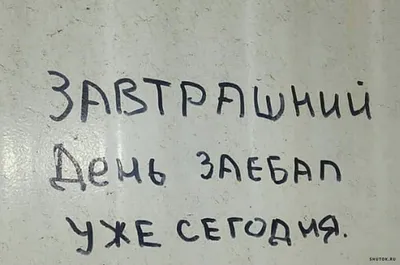 ЗАВТРАШНИЙ
День ЗАЕБАЛ
УЖЕ СЕГОДНЯ.
SHUTOK.RU